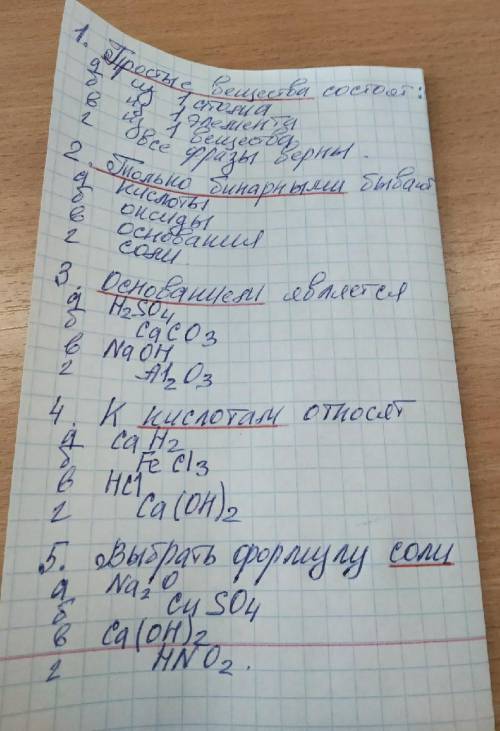 1. Простые вещества состоят:
а из 1 атома
б из 1 элемента
в из 1 вещества
г все фразы верны.
2. Только бинарными бывают
а кислоты
б оксиды
в основания
г соли
3. Основанием является
а H2SO4
б CaCO3
в NaOH
г Al2O3
4. К кислотам относят
а CaH2
б FeCl3
в HCl
г Ca(OH)2
5. Выбрать формулу соли
а Na2O
б CuSO4
в Ca(OH)2
г HNO2.